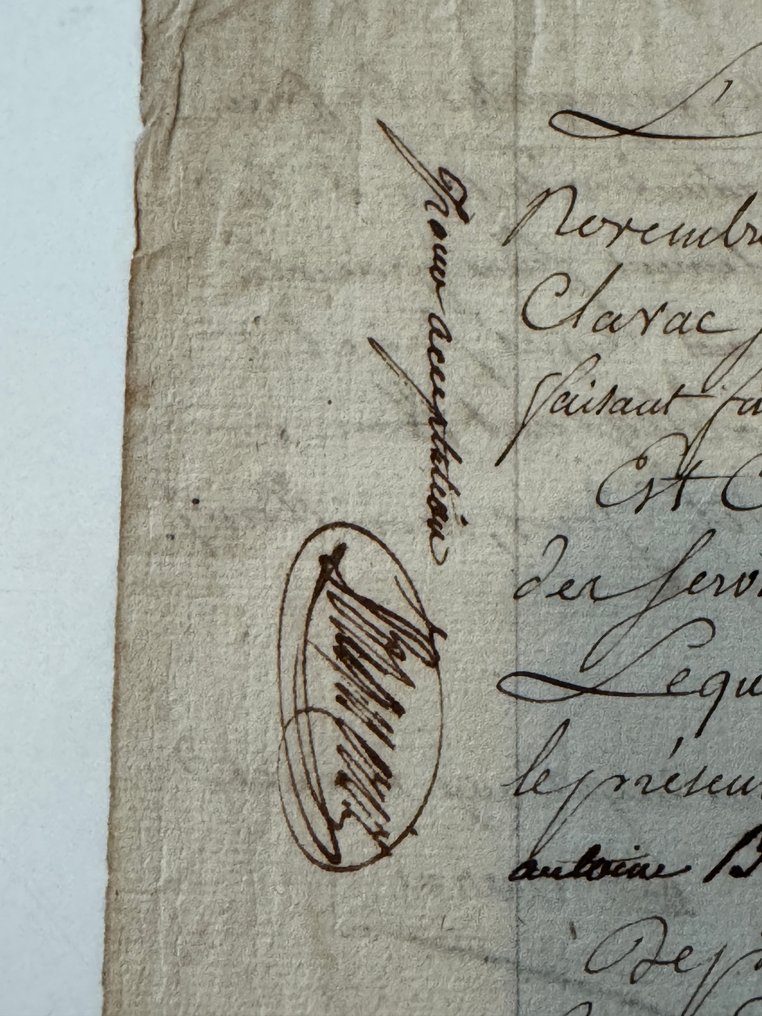 Pour acceptation
L'
Novembr
Clavac
faisant fa
Est C
des servi
Lequ
le présen
antoine B
Dep